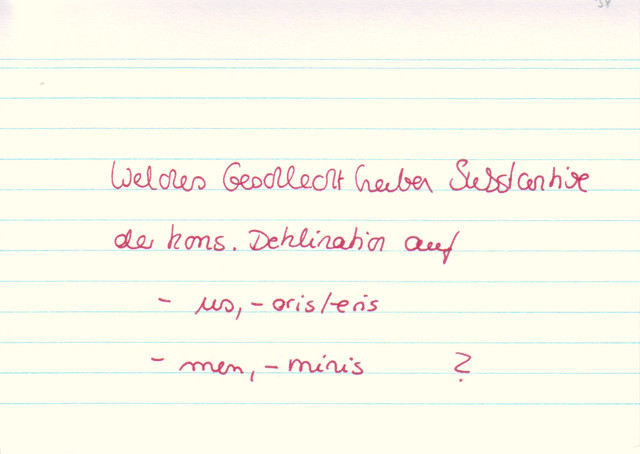 Welches Geschlecht haben Substantive
der kons. Deklination auf
- us, -oris/-eris
- men, -minis ?